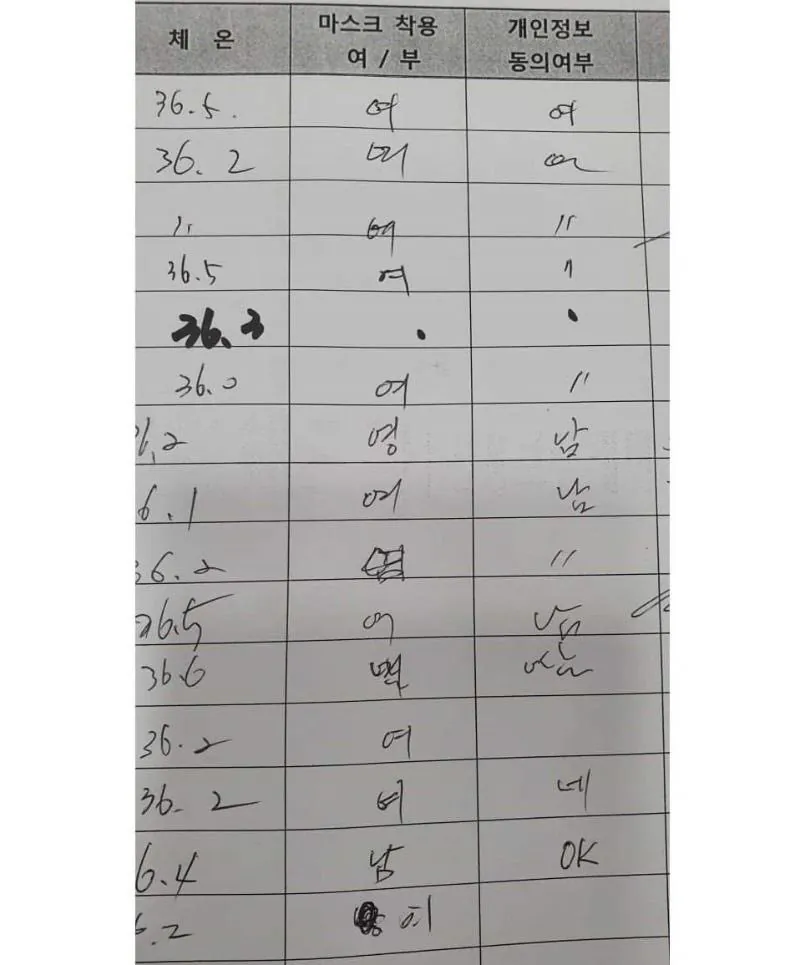 체 온 마스크 착용 개인정보
여 / 부 동의여부
36.5. 여 여
36.2 여 여
〃 여 〃
36.5 여 〃
36.3 . .
36.0 여 〃
6.2 영 남
6.1 여 남
36.2 〃
36.5 여 남
36.6 남
36.2 여
36.2 여 네
6.4 남 OK
6.2 여